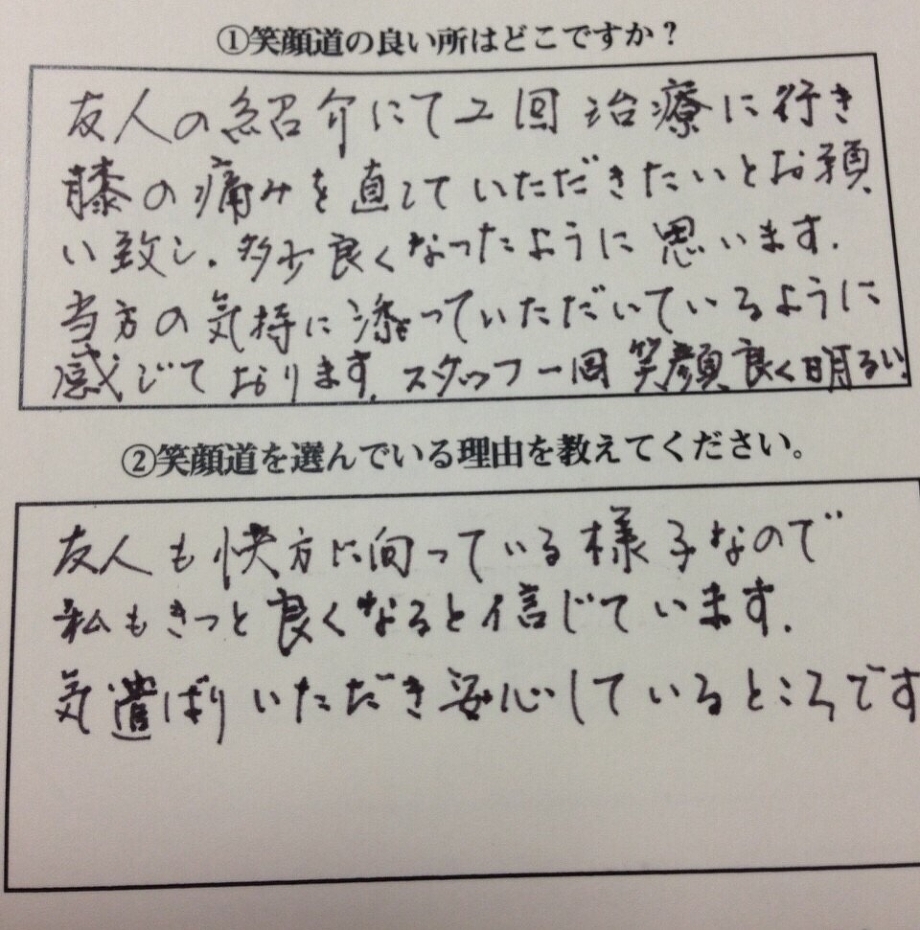 ①笑顔道の良い所はどこですか？
友人の紹介にて2回治療に行き
膝の痛みを直していただきたいとお願
い致し.多少良くなったように思います.
当方の気持に添っていただいているように
感じております.スタッフ一同笑顔良く明るい.
②笑顔道を選んでいる理由を教えてください。
友人も快方に向っている様子なので
私もきっと良くなると信じています.
気遣ばりいただき安心しているところです